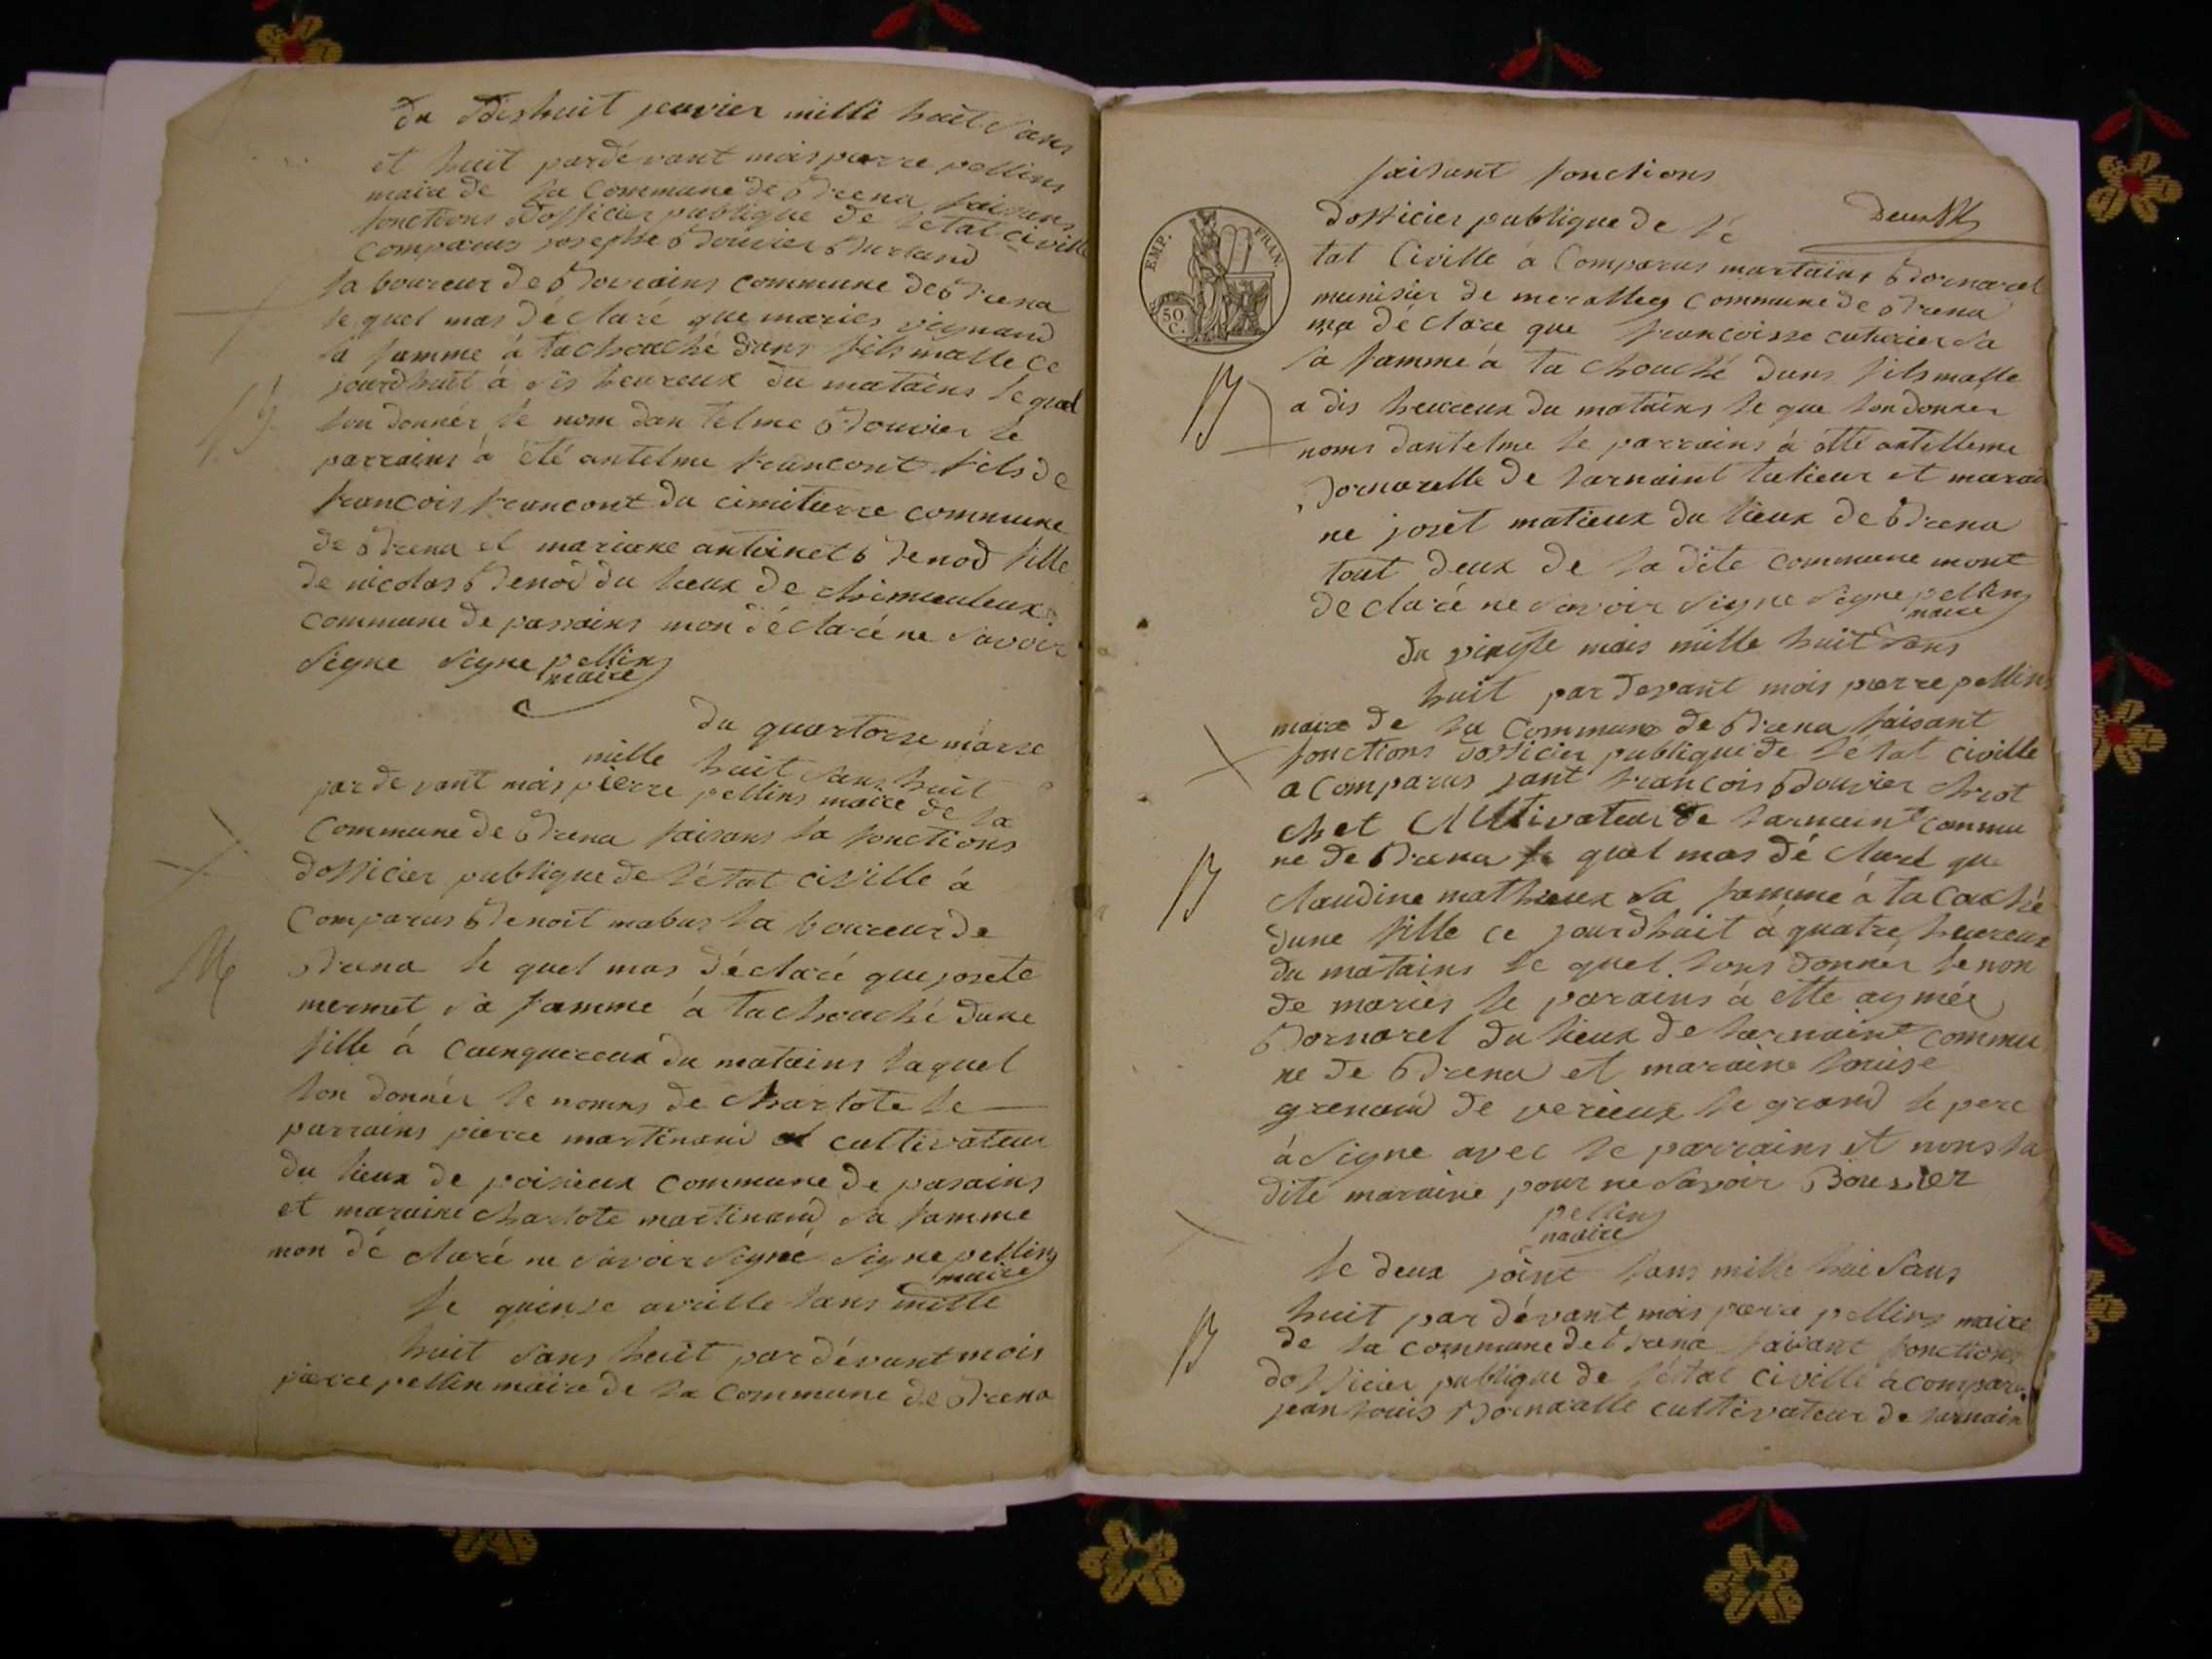 du dishuit jeavier mille huit sans
et huit pardevant mois pierre pellins
maire de la Commune de Brena faisans
fonctions dofficier publique de letat civille
Comparus josephe Bouvier Burland
la boureur de Borrains commune de Brena
le quel mas déclaré que maries vignand
sa famme à tachouché duns fils malle ce
jourdhuit à sis heureux du matains le quel
lon donnér le nom dan telme Bouvier le
parrains à été antelme francont fils de
francois francont du cimiterre commune
de Brena et mariane antoinet Benod fille
de nicolas Benod du lieux de chimieuleux
Commune de passains mon déclaré ne savoir
signe signe pellins
maire
du quartorse marse
mille huit sans huit
par de vant mois pierre pellins maire de la
Commune de Brena faisans la fonctions
dofficier publique de létat civille à
Comparus Benoit mabus la boureur de
Brena le quel mas déclaré que josete
mermet sa famme à tachouché dune
fille à cainquereux du matains laquel
lon donnér le nomns de charlote le
parrains pierre martinand et cultivateur
du lieux de poisieux commune de pasains
et maraine charlote martinand sa famme
mon dé claré ne savoir signé signe pellins
maire
le quinse avrille lans mille
huit sans huit par dévant mois
pierre pellin maire de la Commune de Brena
faisant fonctions
dofficier publique de lé
EMP. FRAN.
50
C.
tat Civille à Comparus martains Bornarel
munisier de meralleg commune de Brena
ma déclare que francoisse cuturier sa
sa famme à ta chouché duns fils malle
a dis heureux du matains le que lon donner
noms dantelme le parrains à étté antelleme
Bornarelle de larnaint talieur et marai
ne joset matieux du lieux de Brena
tout deux de la dite commune mont
de claré ne savoir signe signe pellins
maire
du vingte mais mille huit sans
huit par devant mois pierre pellins
maire de la Commune de Brena faisant
fonctions dofficier publique de létat civille
a Comparus jant francois Bouvier chrot
chet Cultivateur de larnaint commu
ne de Brena le quel mas dé claré que
claudine mathieux sa famme à ta couché
dune fille ce jourdhuit à quatre heureux
du matains le quel lons donner le non
de maries le parains à etté aymée
Bornarel du lieux de larnaint commu
ne de Brena et maraine louise
grenaud de verieux le grand le pere
à signe avec le parrains et nons la
dite maraine pour ne savoir Bouvier
pellins
maire
le deux joint lans mille hui sans
huit par dévant mois pierre pellins maire
de la commune de Brena faisant fonctions
dofficier publique de létat civille à comparu
jean louis Bornaralle cultivateur de larnain